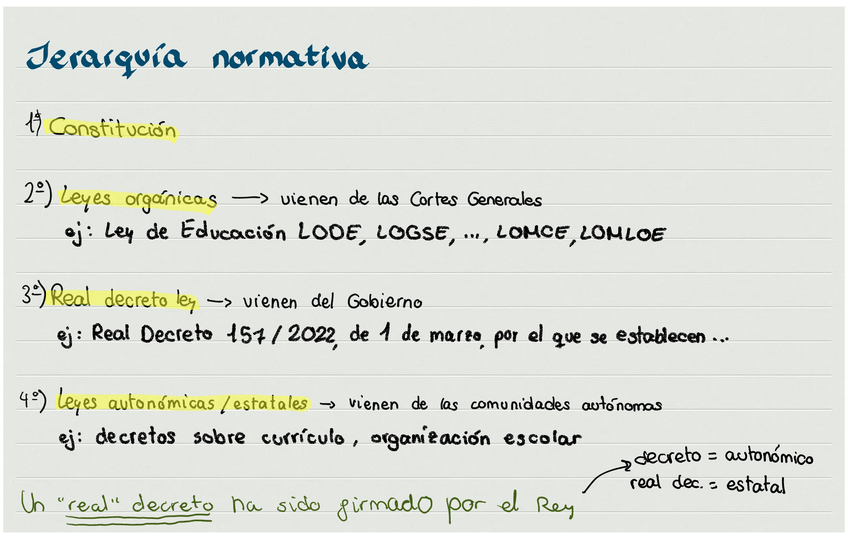 Jerarquía normativa
1º) Constitución
2º) Leyes orgánicas → vienen de las Cortes Generales
ej: Ley de Educación LODE, LOGSE, ..., LOMCE, LOMLOE
3º) Real decreto ley → vienen del Gobierno
ej: Real Decreto 157/2022, de 1 de marzo, por el que se establecen ...
4º) Leyes autonómicas/estatales → vienen de las comunidades autónomas
ej: decretos sobre currículo, organización escolar
decreto = autonómico
real dec. = estatal
Un "real" decreto ha sido firmado por el Rey